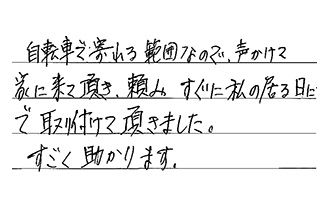 自転車で寄れる範囲なので、声かけて
家に来て頂き、頼み、すぐに私の居る日に
で取り付けて頂きました。
すごく助かります。